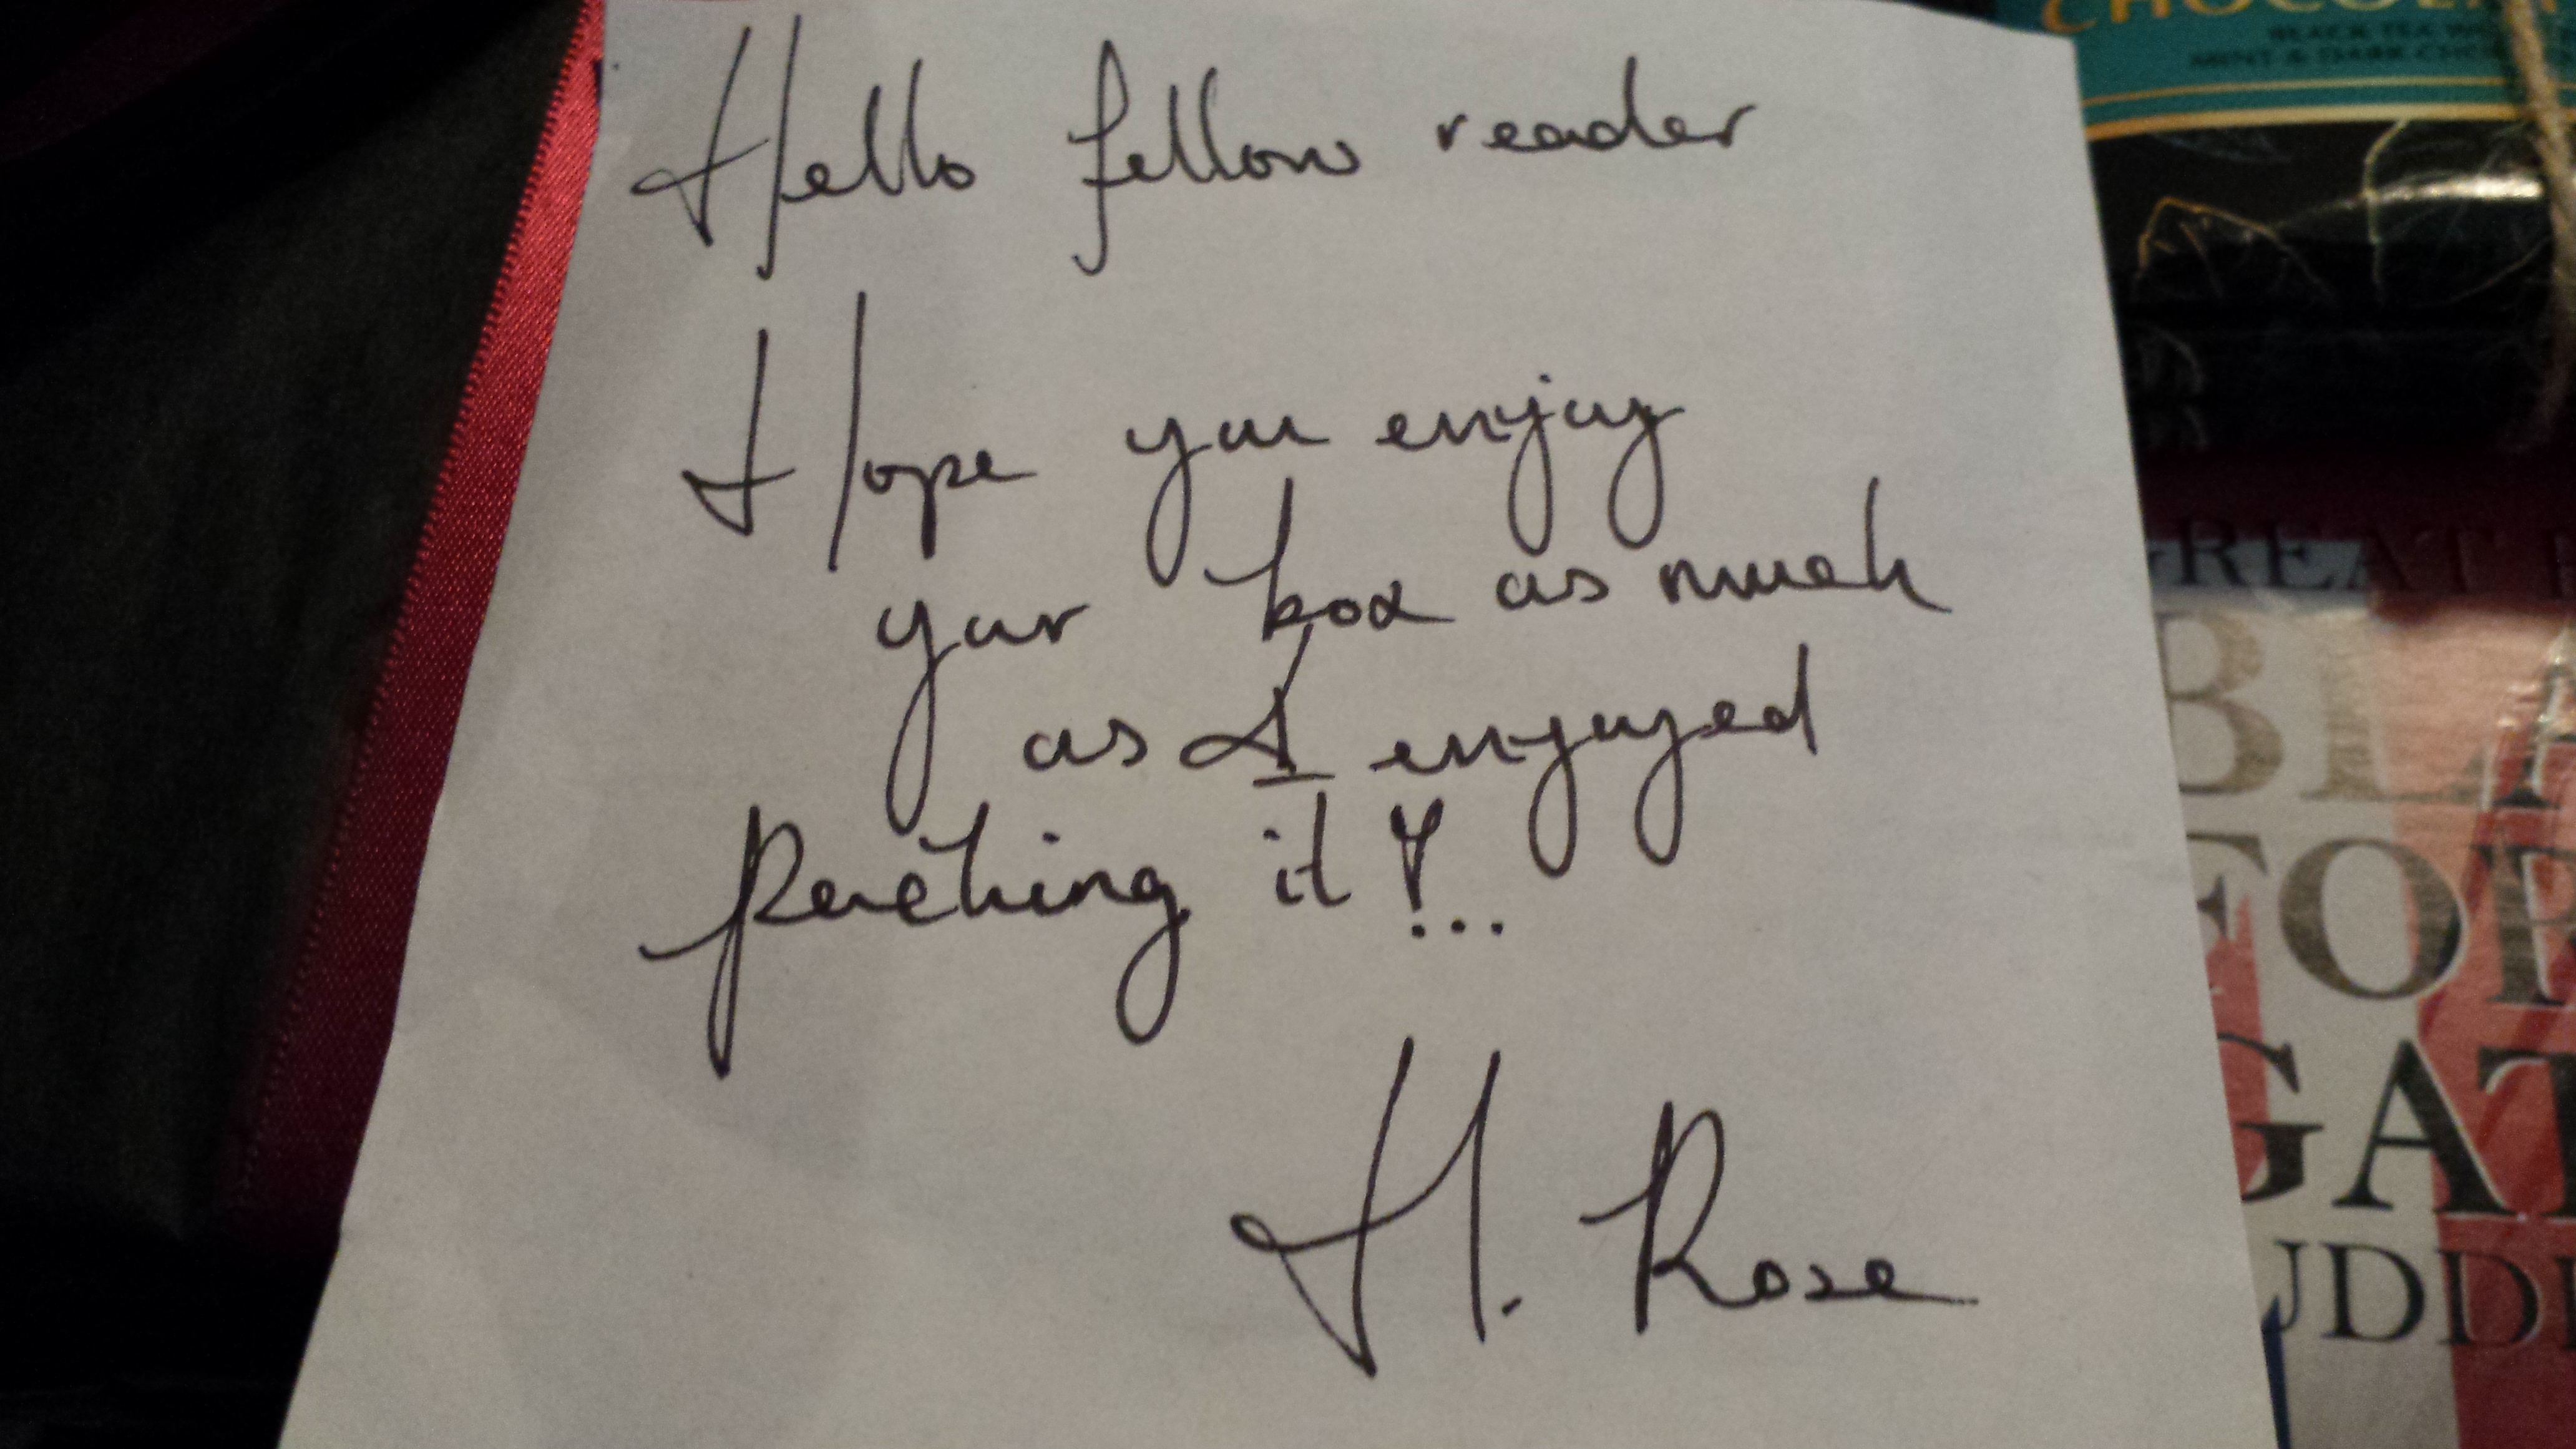 Hello fellow reader
Hope you enjoy
your box as much
as I enjoyed
packing it!...
H. Rose
CHOCOL
BLACK TEA W
MINT & DARK CHO
GREAT
FOR
GAT
UDDI